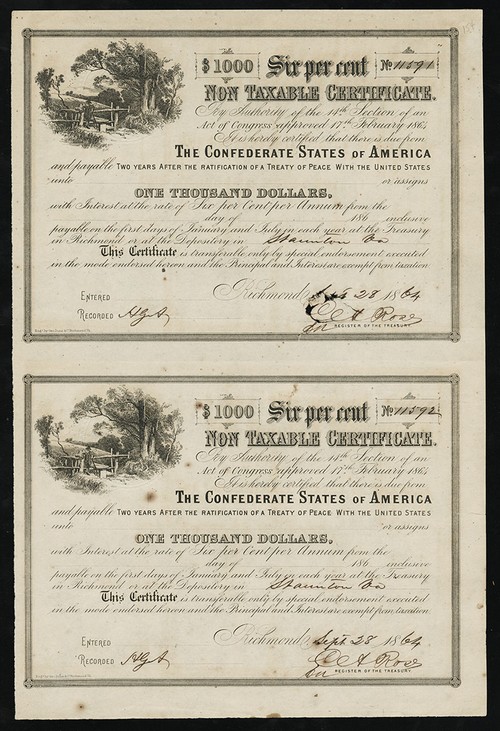 $1000 Six per cent No 11591
Non Taxable Certificate.
By Authority of the 14th Section of an
Act of Congress approved 17th February 1864
It is hereby certified that there is due from
The Confederate States of America
and payable Two years after the ratification of a Treaty of Peace with the United States
unto or assigns
One Thousand Dollars,
with Interest at the rate of Six per Cent per Annum from the
day of 186 inclusive
payable on the first days of January and July in each year at the Treasury
in Richmond or at the Depository in Staunton Va
This Certificate is transferable only by special endorsement executed
in the mode endorsed hereon and the Principal and Interest are exempt from taxation
Richmond, Sept 28 1864
Entered
Recorded E A Rose
Register of the Treasury
$1000 Six per cent No 11592
Non Taxable Certificate.
By Authority of the 14th Section of an
Act of Congress approved 17th February 1864
It is hereby certified that there is due from
The Confederate States of America
and payable Two years after the ratification of a Treaty of Peace with the United States
unto or assigns
One Thousand Dollars,
with Interest at the rate of Six per Cent per Annum from the
day of 186 inclusive
payable on the first days of January and July in each year at the Treasury
in Richmond or at the Depository in Staunton Va
This Certificate is transferable only by special endorsement executed
in the mode endorsed hereon and the Principal and Interest are exempt from taxation
Richmond, Sept. 28 1864
Entered
Recorded E A Rose
Register of the Treasury